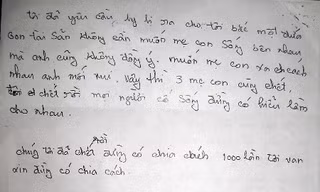 tôi đã yêu cầu ly dị ra cho tôi bắc một đứa
con tài sản không cần muốn mẹ con sống bên nhau
mà anh cũng không đồng ý. muốn mẹ con xa cách
nhau anh mới vui. vậy thì 3 mẹ con cùng chết.
chết rồi mọi người cố sống đừng có hiểu lầm
cho nhau.
chúng tôi đã chết rồi đừng có chia cách 1000 lần tôi van
xin đừng có chia cách.